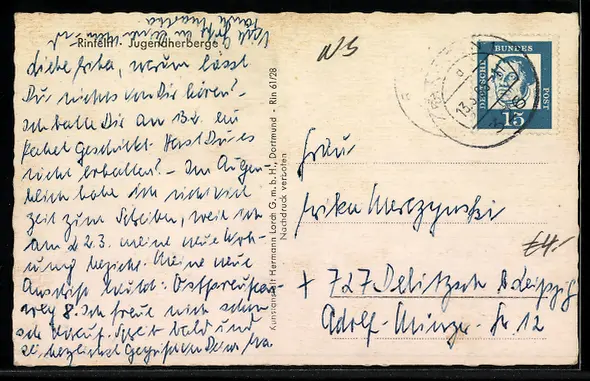 Rinteln · Jugendherberge
Liebe Erika, warum lässt
Du nichts von Dir hören?
Ich hatte Dir am 13.2. ein
Paket geschickt. Hast Du es
nicht erhalten? – Im Augen-
blick habe ich nicht viel
Zeit zum Schreiben, weil ich
am 22.3. meine neue Woh-
nung beziehe. Meine neue
Anschrift lautet: Ostpreußen-
weg 8. Ich freue mich schon
sehr darauf. Schreib bald und
sei herzlichst gegrüßt von Deiner
Tante Martha
Kunstanstalt Hermann Lorch G.m.b.H., Dortmund · Rin 61/28
Nachdruck verboten
DEUTSCHE
BUNDES
POST
15
Frau
Erika Marczynski
+ 727 Delitzsch b Leipzig
Adolf-Münzer-Str. 12